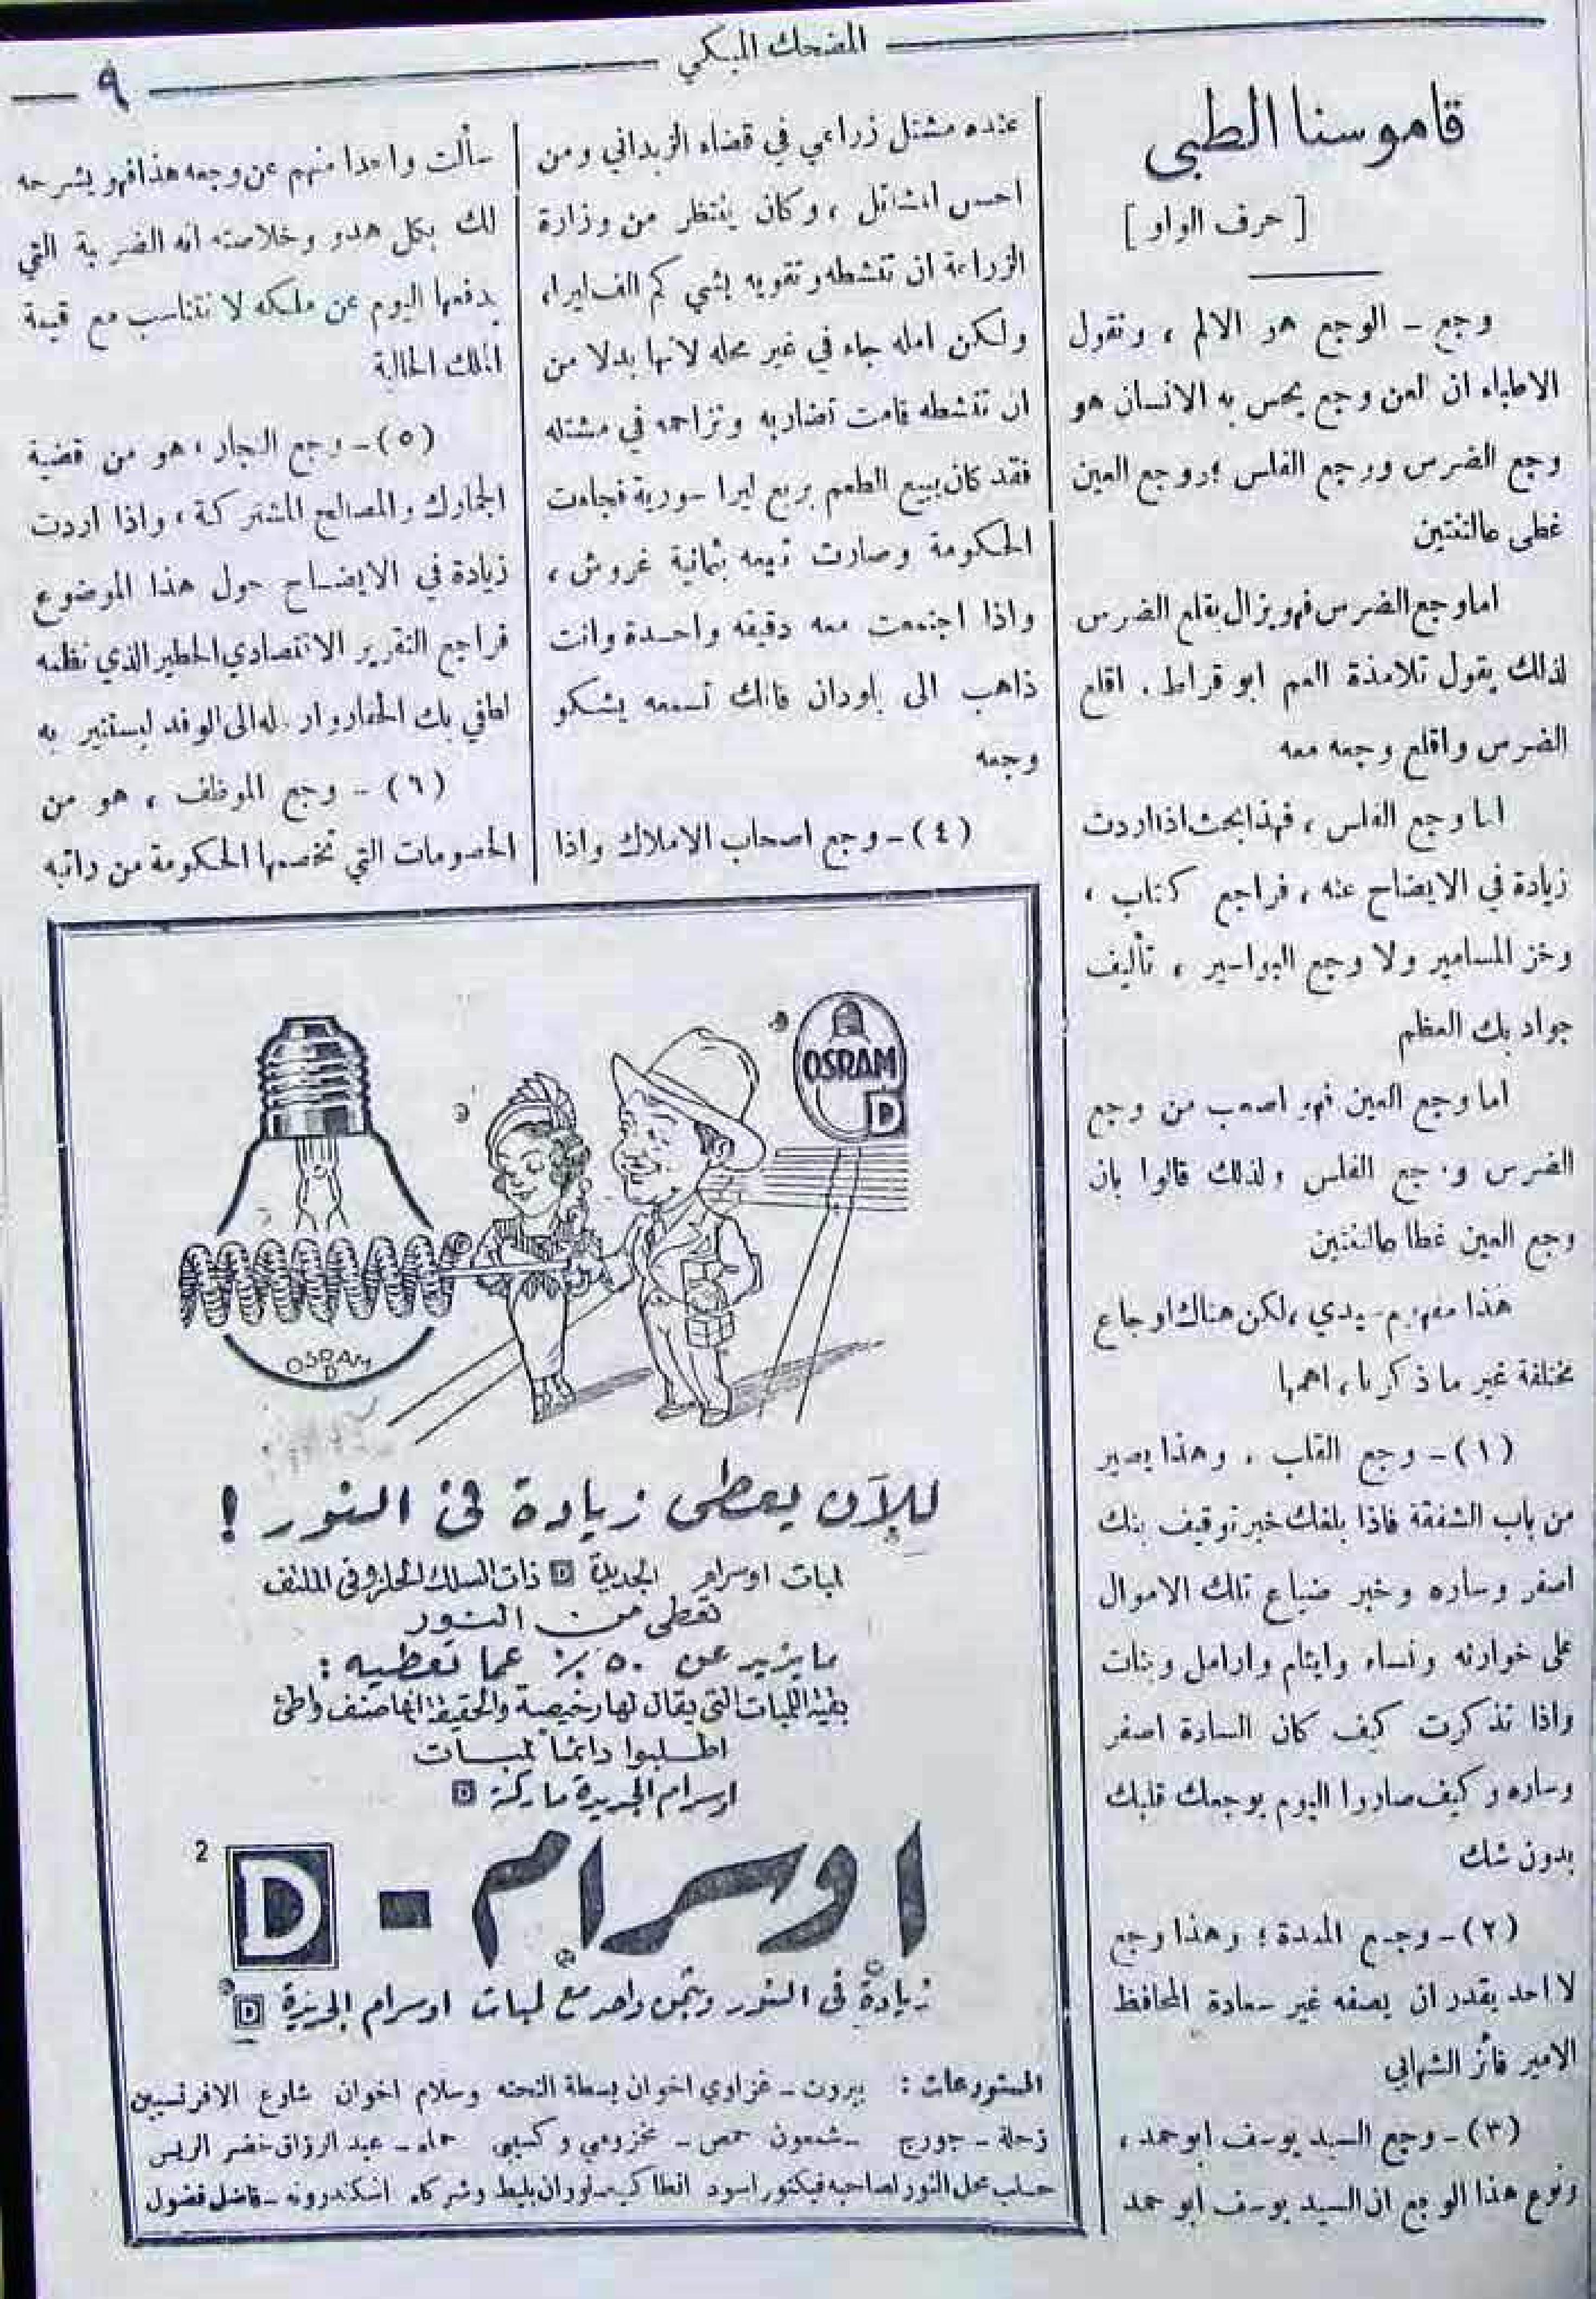 المضحك المبكي
٩
قاموسنا الطبي
[ حرف الواو ]
وجع – الوجع هو الالم ، وتقول
الاطباء ان العن وجع يحس به الانسان هو
وجع الضرس ووجع الفلس ؛ ووجع العين
غطى عالثنتين
اما وجع الضرس فهو يزال بقلع الضرس
لذلك يقول تلامذة العم ابو قراط . اقلع
الضرس واقلع وجعه معه
اما وجع الفلس ، فهذا بحث اذا اردت
زيادة في الايضاح عنه ، فراجع كتاب ،
وخز المسامير ولا وجع البواسير ، تأليف
جواد بك العظم
اما وجع العين فهو اصعب من وجع
الضرس ووجع الفلس ولذلك قالوا بان
وجع العين غطا عالثنتين
هذا مفهوم سيدي ، لكن هناك اوجاع
مختلفة غير ما ذكرنا ، اهمها
(١) – وجع القلب . وهذا يصير
من باب الشفقة فاذا بلغك خبر توقيف بنك
اصفر وساره وخبر ضياع تلك الاموال
على خوارنه ونساء وايتام وارامل وبنات
واذا تذكرت كيف كان السادة اصفر
وساره وكيف صاروا اليوم يوجعك قلبك
بدون شك
(٢) – وجع المعدة ؛ وهذا وجع
لا احد يقدر ان يصفه غير سعادة المحافظ
الامير فائز الشهابي
(٣) – وجع السيد يوسف ابو حمد ،
ونوع هذا الوجع ان السيد يوسف ابو حمد
عنده مشتل زراعي في قضاء الزبداني ومن
احسن المشاتل ، وكان ينتظر من وزارة
الزراعة ان تنشطه وتقويه بشي كم الف ليرا،
ولكن امله جاء في غير محله لانها بدلا من
ان تنشطه قامت تضاربه وتزاحمه في مشتله
فقد كان يبيع الطعم بربع ليرا سورية فجاءت
الحكومة وصارت تبيعه بثمانية غروش ،
واذا اجتمعت معه دقيقه واحدة وانت
ذاهب الى بلودان فانك تسمعه يشكو
وجعه
(٤) – وجع اصحاب الاملاك واذا
سألت واحدا منهم عن وجعه هذا فهو يشرحه
لك بكل هدو وخلاصته انه الضريبة التي
يدفعها اليوم عن ملكه لا تتناسب مع قيمة
الملك الحالية
(٥) – وجع التجار ، هو من قضية
الجمارك والمصالح المشتركة ، واذا اردت
زيادة في الايضاح حول هذا الموضوع
فراجع التقرير الاقتصادي الخطير الذي نظمه
لطفي بك الحفار وارسله الى الوفد ليستنير به
(٦) – وجع الموظف ، هو من
الخصومات التي تخصمها الحكومة من راتبه
OSRAM
D
OSRAM
D
للآن يعطى زيادة فى النور !
لمبات اوسرام الجديدة D ذات السلك الحلزونى الملتف
تعطى من النور
ما يزيد عن ٥٠ ٪ عما تعطيه :
بقية اللمبات التى يقال لها رخيصة والحقيقة انها صنف واطئ
اطلبوا دائماً لمبات
اوسرام الجديدة ماركة D
2
اوسرام - D
زيادة فى النور وبثمن واحد مع لمبات اوسرام الجديدة D
المستودعات : بيروت – غزاوي اخوان بسطة التحته وسلام اخوان شارع الافرنسيين
زحلة – جورج شمعون حمص – مخزومي وكسيبي حماه – عبد الرزاق خضر الريس
حلب محل النور لصاحبه فيكتور اسود انطاكيه – لوران بليط وشركاه اسكندرونه – فاضل فضول